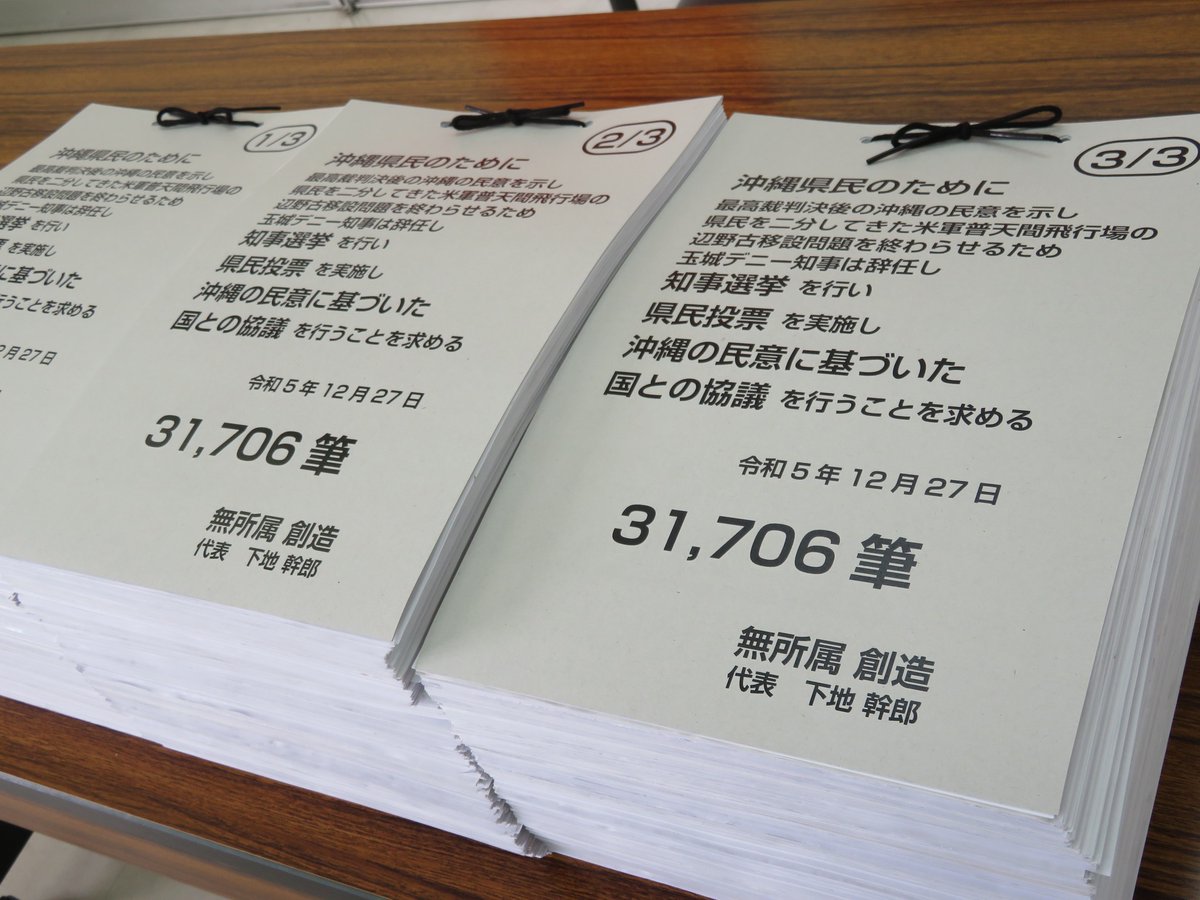 1/3
沖縄県民のために
最高裁判決後の沖縄の民意を示し
県民を二分してきた米軍普天間飛行場の
辺野古移設問題を終わらせるため
城デニー知事は辞任し
選挙を行い
を実施し
に基づいた
行うことを求める
2月27日
2/3
沖縄県民のために
最高裁判決後の沖縄の民意を示し
県民を二分してきた米軍普天間飛行場の
辺野古移設問題を終わらせるため
玉城デニー知事は辞任し
知事選挙を行い
県民投票を実施し
沖縄の民意に基づいた
国との協議を行うことを求める
令和5年12月27日
31,706筆
無所属 創造
代表 下地 幹郎
3/3
沖縄県民のために
最高裁判決後の沖縄の民意を示し
県民を二分してきた米軍普天間飛行場の
辺野古移設問題を終わらせるため
玉城デニー知事は辞任し
知事選挙を行い
県民投票を実施し
沖縄の民意に基づいた
国との協議を行うことを求める
令和5年12月27日
31,706筆
無所属 創造
代表 下地 幹郎